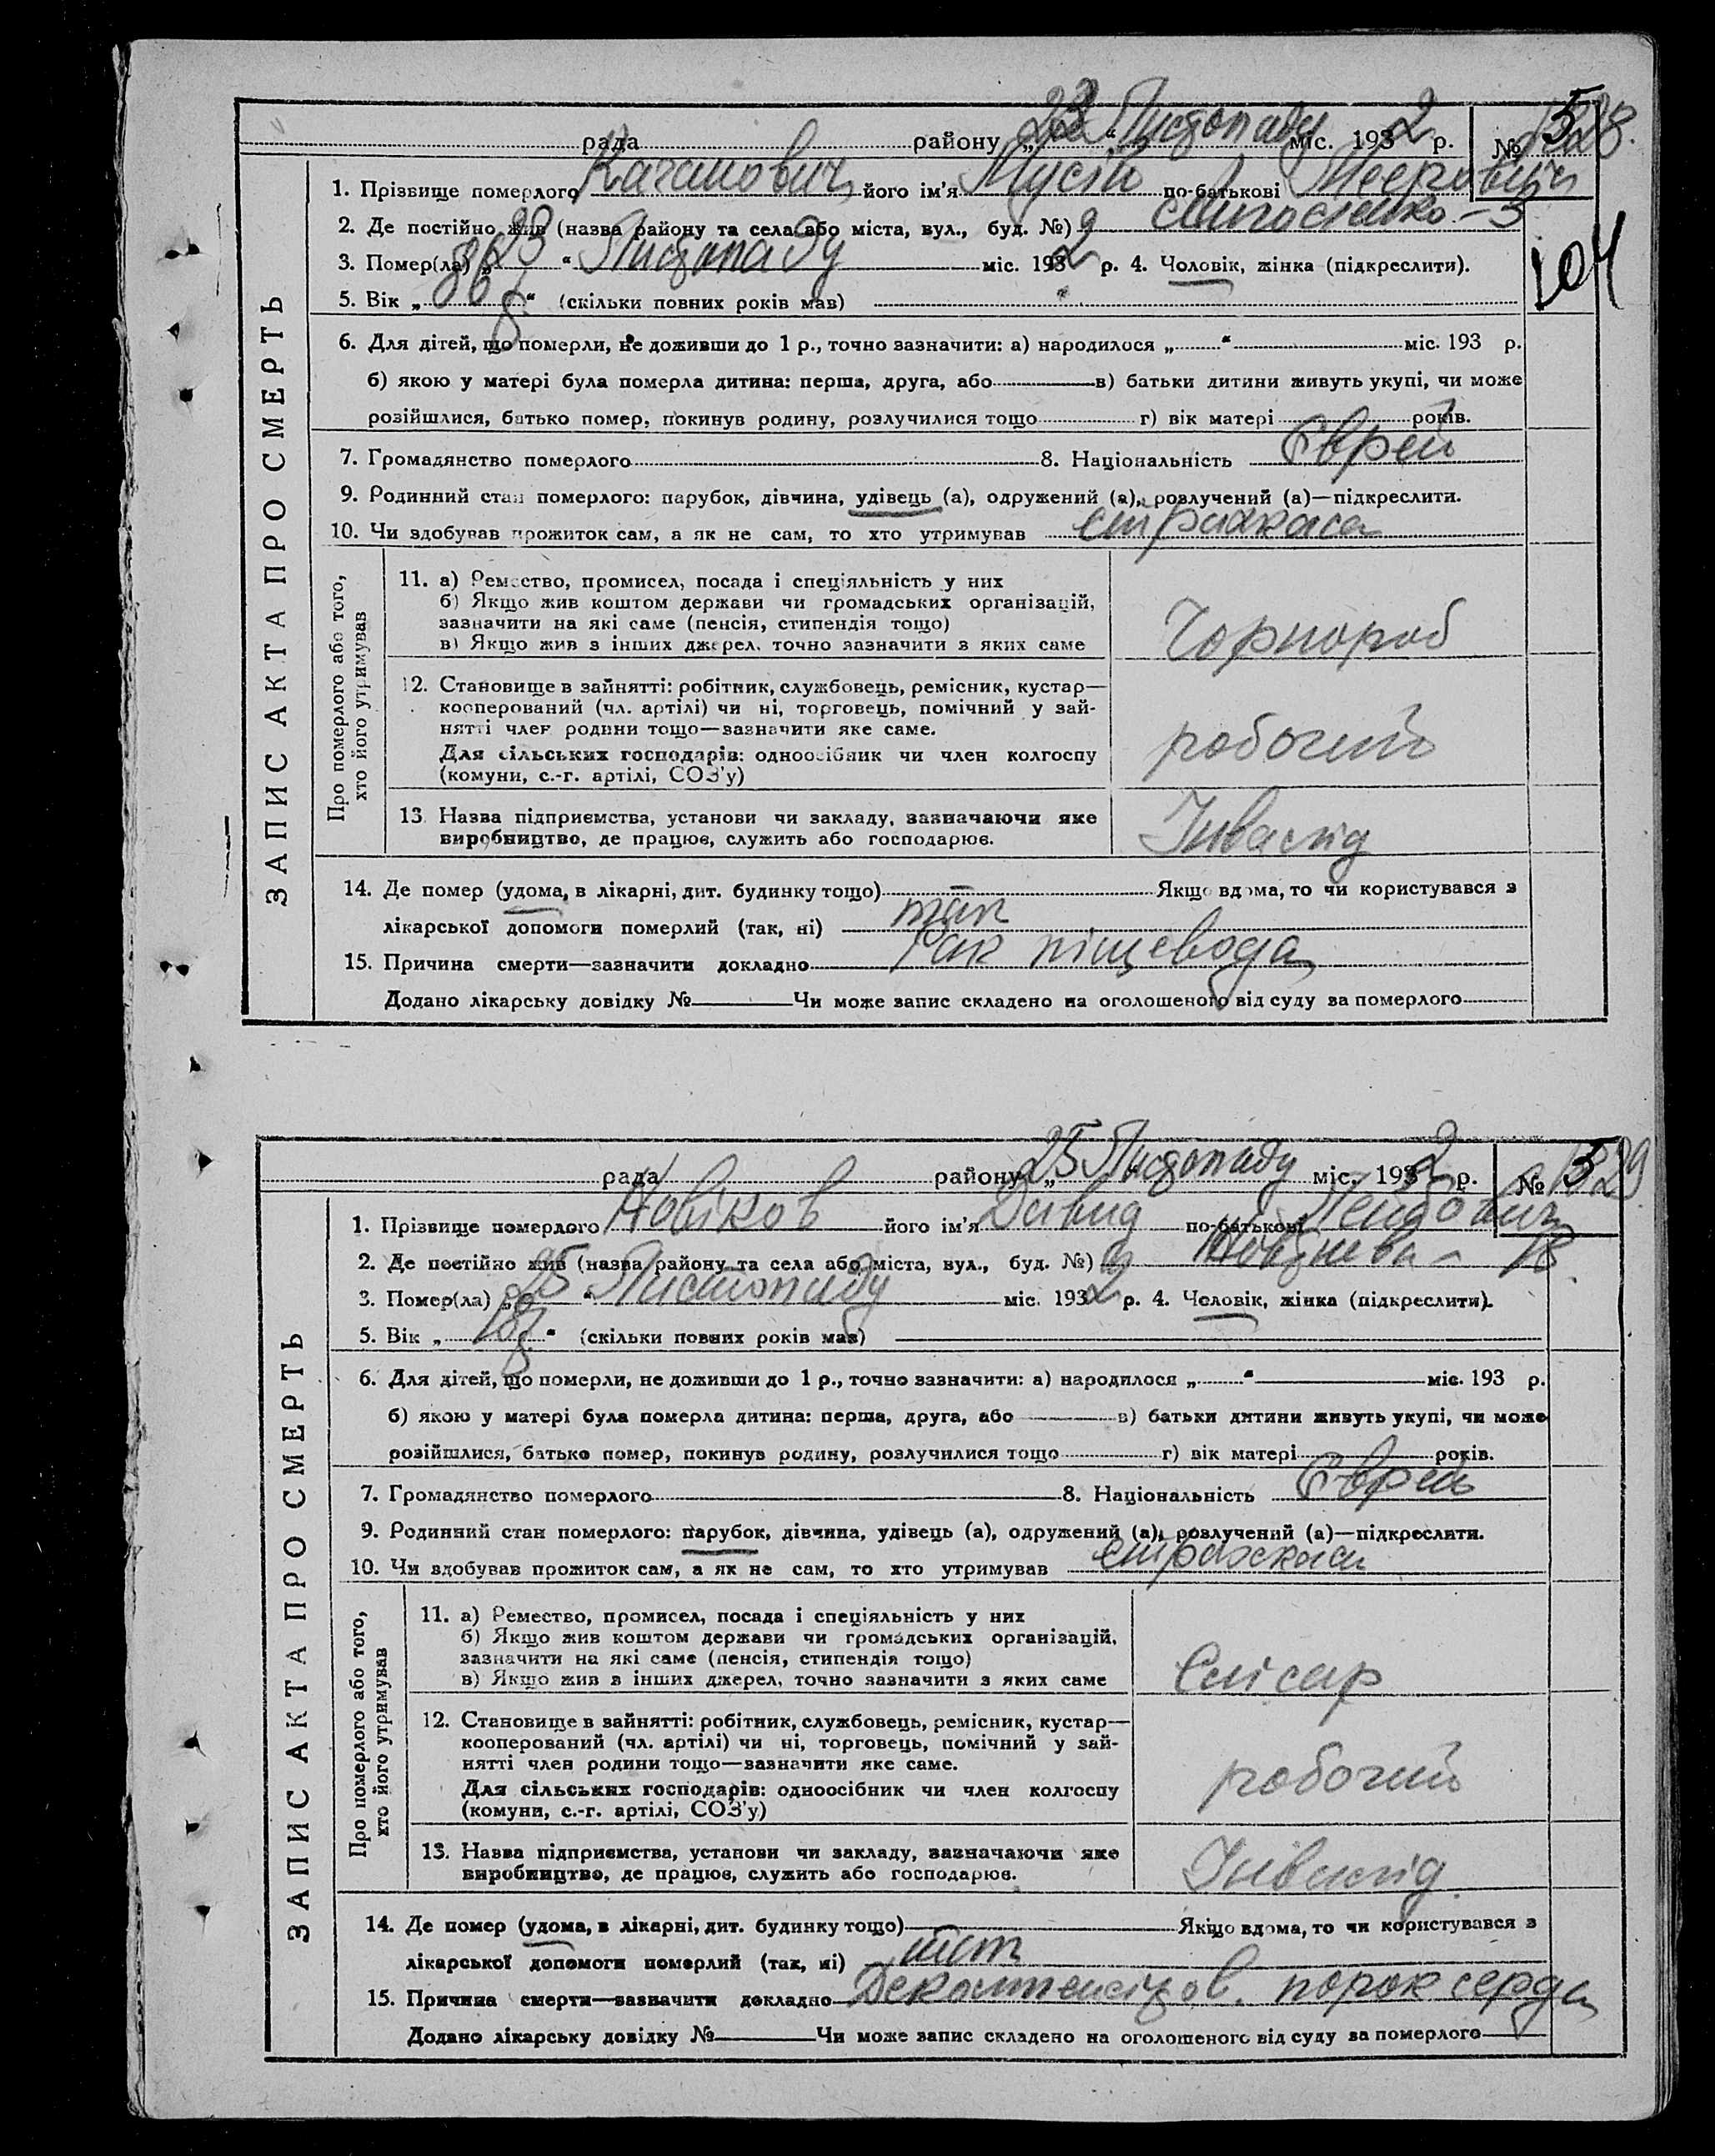 рада району „23“ Листопаду міс. 1932 р. №
1. Прізвище померлого Каганович його ім'я Мусій по-батькові Меерович
2. Де постійно жив (назва району та села або міста, вул., буд. №)
3. Помер(ла) „23“ Листопаду міс. 1932 р. 4. Чоловік, жінка (підкреслити).
104
5. Вік „86“ (скільки повних років мав)
6. Для дітей, що померли, не доживши до 1 р., точно зазначити: а) народилося „ “ міс. 193 р.
б) якою у матері була померла дитина: перша, друга, або в) батьки дитини живуть укупі, чи може
розійшлися, батько помер, покинув родину, розлучилися тощо г) вік матері років.
7. Громадянство померлого 8. Національність Єврей
9. Родинний стан померлого: парубок, дівчина, удівець (а), одружений (а), розлучений (а)—підкреслити.
10. Чи здобував прожиток сам, а як не сам, то хто утримував страхкаса
ЗАПИС АКТА ПРО СМЕРТЬ
Про померлого або того,
хто його утримував
11. а) Ремество, промисел, посада і спеціяльність у них
б) Якщо жив коштом держави чи громадських організацій,
зазначити на які саме (пенсія, стипендія тощо)
в) Якщо жив з інших джерел, точно зазначити з яких саме
Чорнороб
12. Становище в зайнятті: робітник, службовець, ремісник, кустар—
кооперований (чл. артілі) чи ні, торговець, помічний у зай-
нятті член родини тощо—зазначити яке саме.
Для сільських господарів: одноосібник чи член колгоспу
(комуни, с.-г. артілі, СОЗ'у)
робочий
13. Назва підприємства, установи чи закладу, зазначаючи яке
виробництво, де працює, служить або господарює.
Інвалід
14. Де помер (удома, в лікарні, дит. будинку тощо) — Якщо вдома, то чи користувався з
лікарської допомоги померлий (так, ні) так
15. Причина смерти—зазначити докладно Рак піщевода
Додано лікарську довідку № Чи може запис складено на оголошеного від суду за померлого
рада району „25“ Листопаду міс. 1932 р. №
1. Прізвище померлого Новіков його ім'я Давид по-батькові Лейбович
2. Де постійно жив (назва району та села або міста, вул., буд. №) 18
3. Помер(ла) „25“ Листопаду міс. 1932 р. 4. Чоловік, жінка (підкреслити).
5. Вік „18“ (скільки повних років мав)
6. Для дітей, що померли, не доживши до 1 р., точно зазначити: а) народилося „ “ міс. 193 р.
б) якою у матері була померла дитина: перша, друга, або в) батьки дитини живуть укупі, чи може
розійшлися, батько помер, покинув родину, розлучилися тощо г) вік матері років.
7. Громадянство померлого 8. Національність Єврей
9. Родинний стан померлого: парубок, дівчина, удівець (а), одружений (а), розлучений (а)—підкреслити.
10. Чи здобував прожиток сам, а як не сам, то хто утримував страхкаса
ЗАПИС АКТА ПРО СМЕРТЬ
Про померлого або того,
хто його утримував
11. а) Ремество, промисел, посада і спеціяльність у них
б) Якщо жив коштом держави чи громадських організацій,
зазначити на які саме (пенсія, стипендія тощо)
в) Якщо жив з інших джерел, точно зазначити з яких саме
Слісар
12. Становище в зайнятті: робітник, службовець, ремісник, кустар—
кооперований (чл. артілі) чи ні, торговець, помічний у зай-
нятті член родини тощо—зазначити яке саме.
Для сільських господарів: одноосібник чи член колгоспу
(комуни, с.-г. артілі, СОЗ'у)
робочий
13. Назва підприємства, установи чи закладу, зазначаючи яке
виробництво, де працює, служить або господарює.
Інвалід
14. Де помер (удома, в лікарні, дит. будинку тощо) Якщо вдома, то чи користувався з
лікарської допомоги померлий (так, ні)
15. Причина смерти—зазначити докладно порок серця
Додано лікарську довідку № Чи може запис складено на оголошеного від суду за померлого